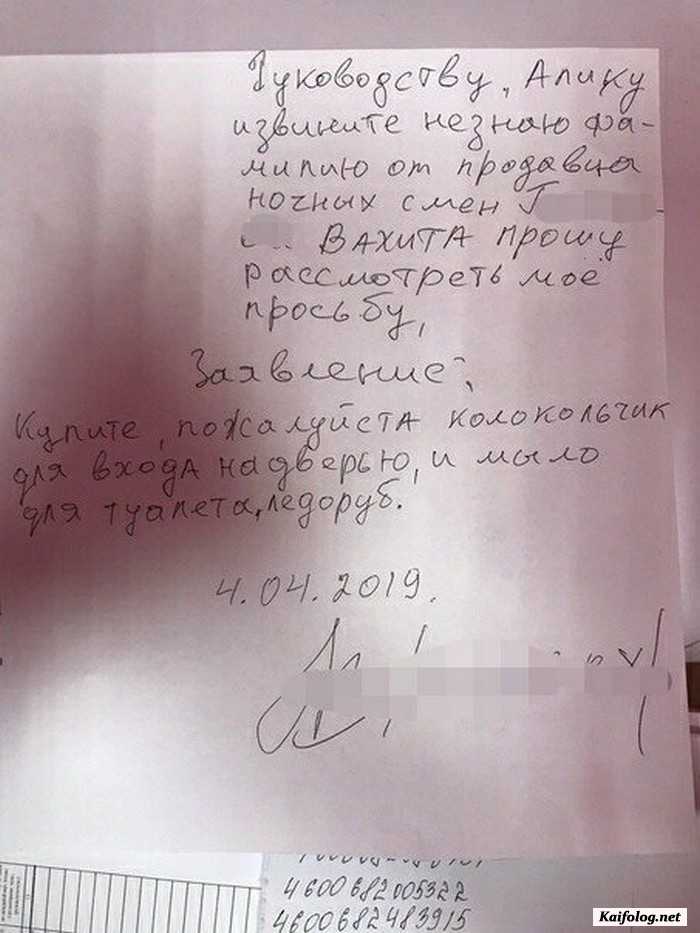 Руководству, Алику
извините незнаю фа-
милию от продавца
ночных смен Г
ВАХИТА прошу
рассмотреть моё
просьбу,
Заявление,
Купите, пожалуйста колокольчик
для входа над дверью, и мыло
для туалета, ледоруб.
4.04.2019.
4600682005322
4600682483915
Kaifolog.net